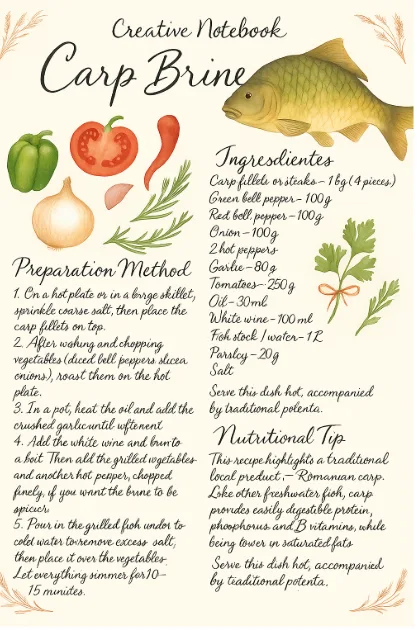 Creative Notebook
Carp Brine
Ingresdientes
Carp fillets or steaks – 1 bg (4 pieces)
Green bell pepper – 100g
Red bell pepper – 100g
Onion – 100g
2 hot peppers
Garlie – 80g
Tomatoes – 250g
Oil – 30ml
White wine – 100 ml
Fish stock / water – 1
Parsley – 20g
Salt
Serve this dish hot, accompanied
by traditional potenta.
Preparation Method
1. On a hot plate or in a large skillet,
sprinkle coarse salt, then place the
carp fillets on top.
2. After washing and chopping
vegetables (diced bell peppers slicea
onions), roast them on the hot
plate.
3. In a pot, heat the oil and add the
crushed garlic until
4. Add the white wine and
a boit. Then add the grilled vegetables
and another hot pepper, chopped
finely, if you want the brine to be
spicier
5. Pour in the grilled fish under to
cold water to remove excess salt,
then place it over the vegetables.
Let everything simmer for 10–
15 minutes.
Nutritional Tip
This recipe highlights a traditional
local product, – Romanian carp.
Like other freshwater fish, carp
provides easily digestible protein,
phosphorus and B vitamins, while
being lower in saturated fats
Serve this dish hot, accompanied
by traditional potenta.